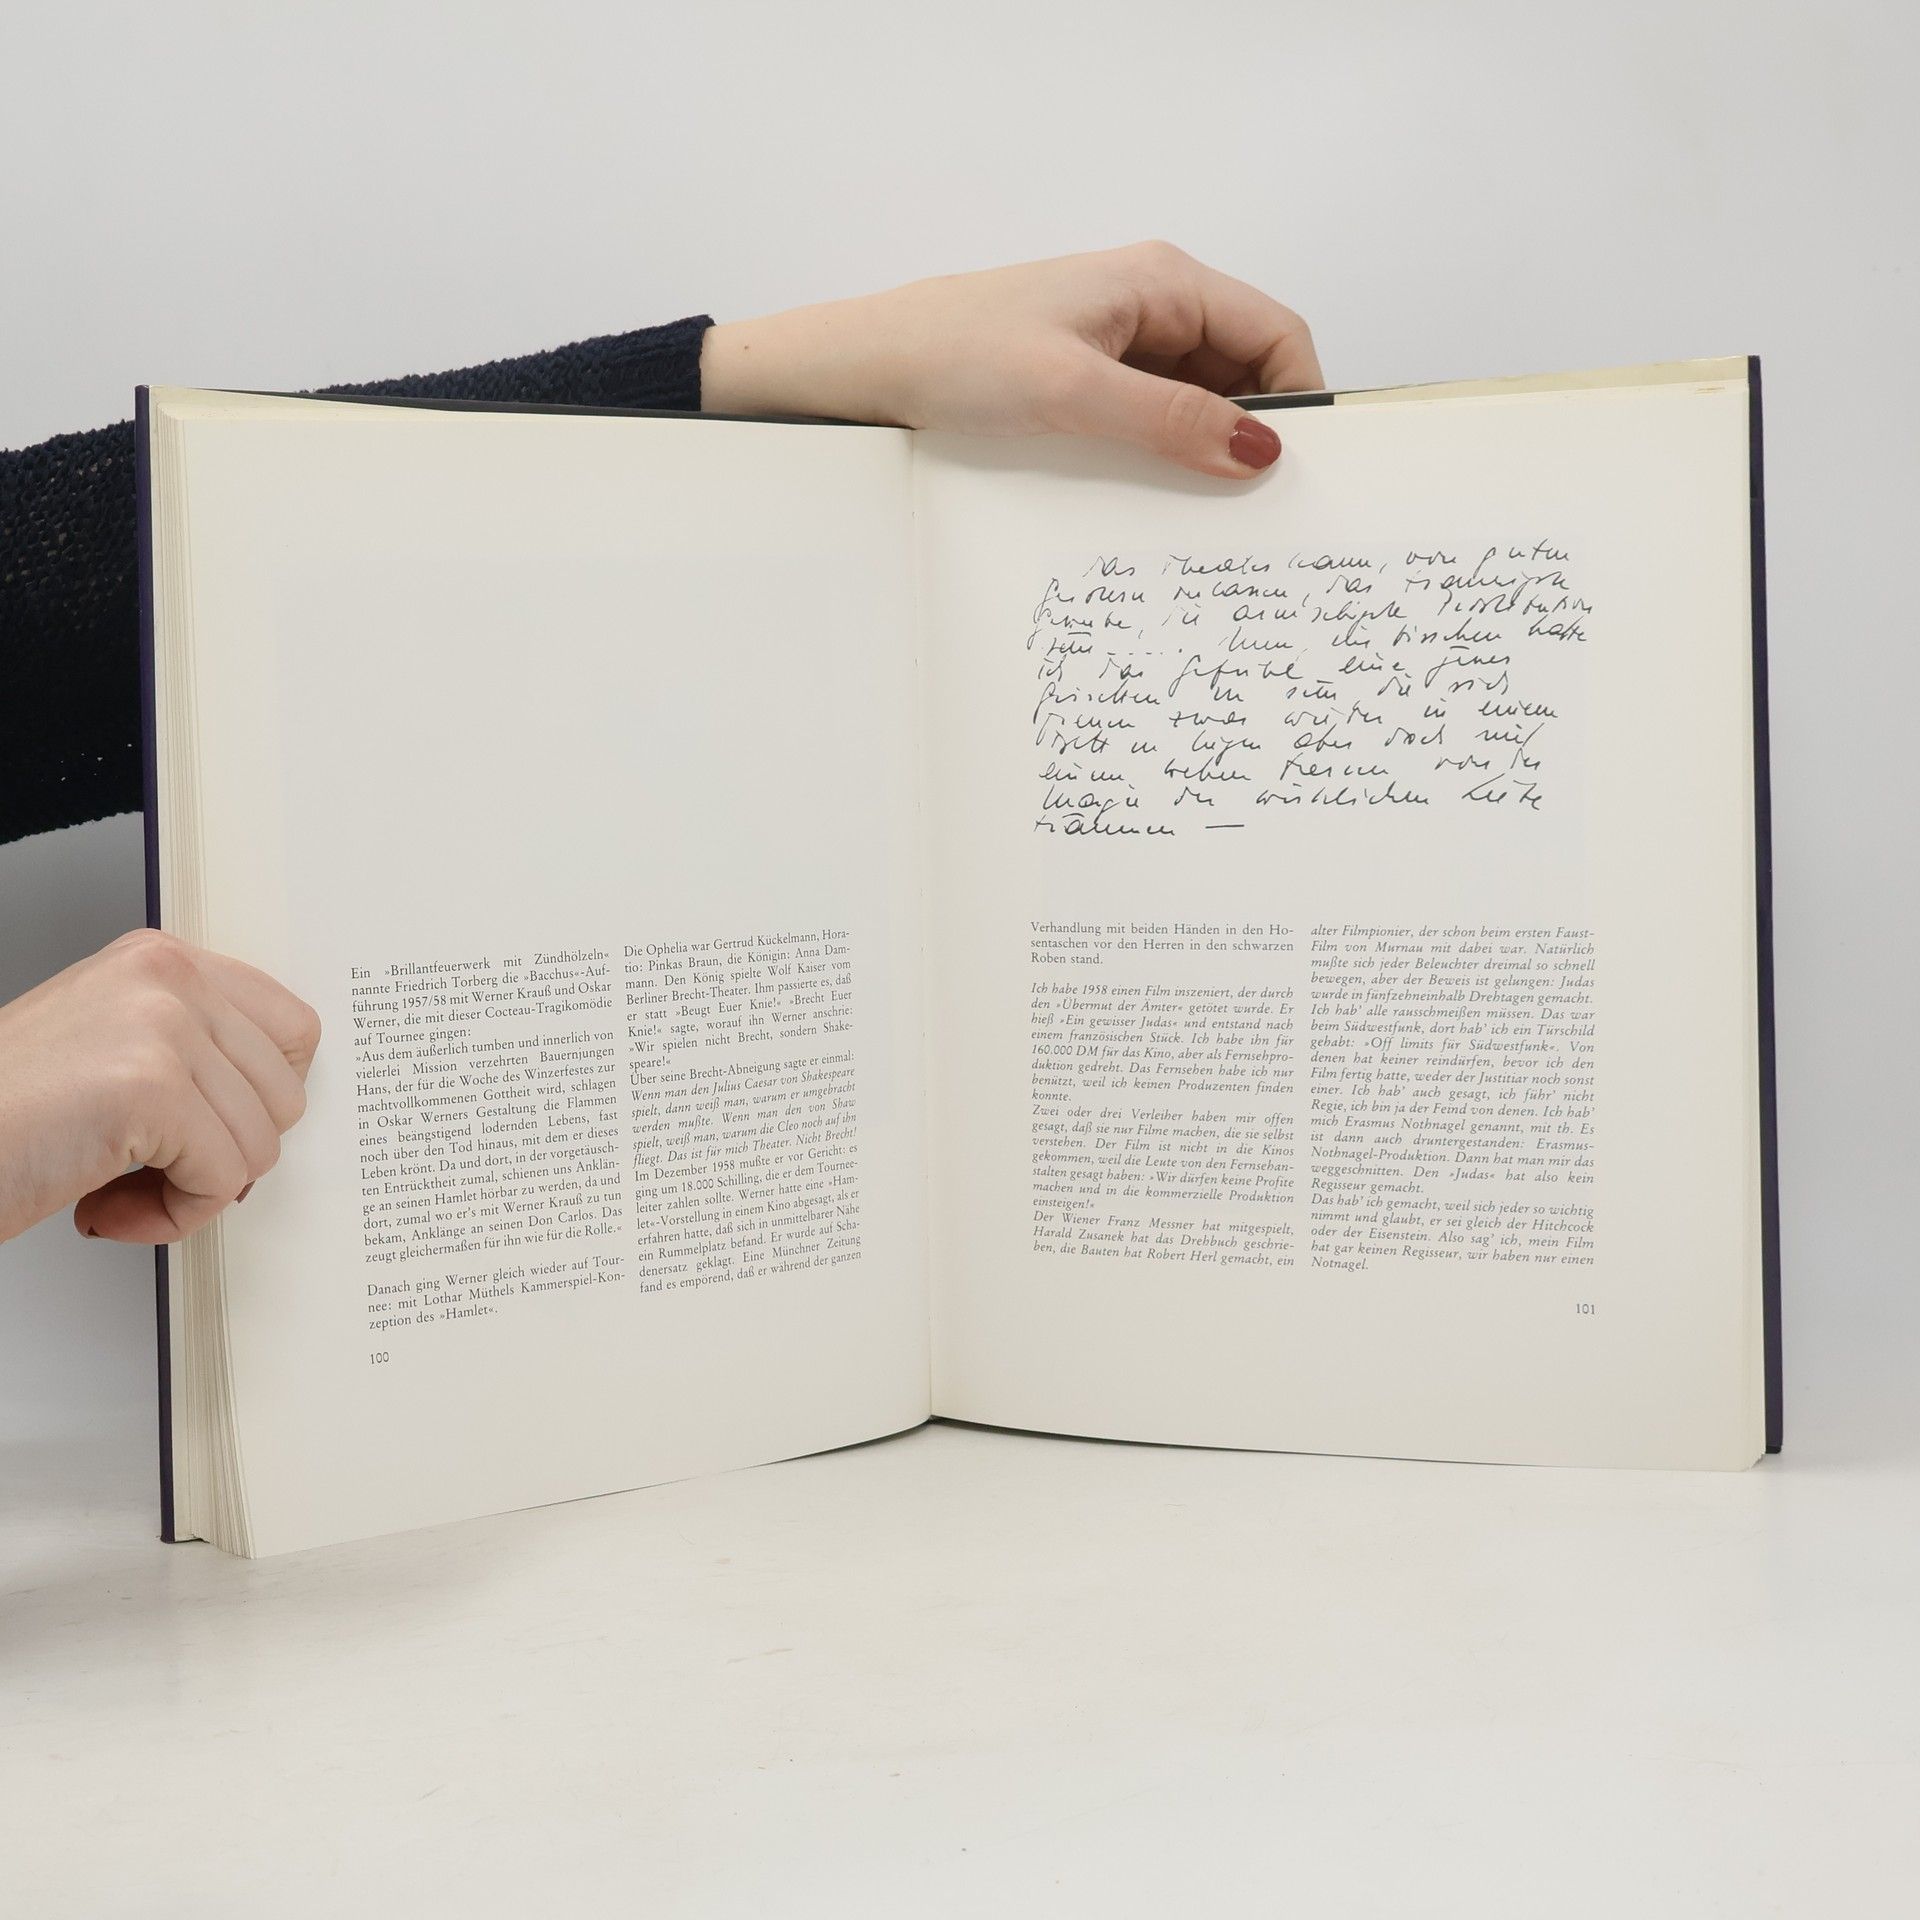 Ein »Brillantfeuerwerk mit Zündhölzeln«
nannte Friedrich Torberg die »Bacchus«-Auf-
führung 1957/58 mit Werner Krauß und Oskar
Werner, die mit dieser Cocteau-Tragikomödie
auf Tournee gingen:
»Aus dem äußerlich tumben und innerlich von
vielerlei Mission verzehrten Bauernjungen
Hans, der für die Woche des Winzerfestes zur
machtvollkommenen Gottheit wird, schlagen
in Oskar Werners Gestaltung die Flammen
eines beängstigend lodernden Lebens, fast
noch über den Tod hinaus, mit dem er dieses
Leben krönt. Da und dort, in der vorgetäusch-
ten Entrücktheit zumal, schienen uns Anklän-
ge an seinen Hamlet hörbar zu werden, da und
dort, zumal wo er's mit Werner Krauß zu tun
bekam, Anklänge an seinen Don Carlos. Das
zeugt gleichermaßen für ihn wie für die Rolle.«
Danach ging Werner gleich wieder auf Tour-
nee: mit Lothar Müthels Kammerspiel-Kon-
zeption des »Hamlet«.
100
Die Ophelia war Gertrud Kückelmann, Hora-
tio: Pinkas Braun, die Königin: Anna Dam-
mann. Den König spielte Wolf Kaiser vom
Berliner Brecht-Theater. Ihm passierte es, daß
er statt »Beugt Euer Knie!« »Brecht Euer
Knie!« sagte, worauf ihn Werner anschrie:
»Wir spielen nicht Brecht, sondern Shake-
speare!«
Über seine Brecht-Abneigung sagte er einmal:
Wenn man den Julius Caesar von Shakespeare
spielt, dann weiß man, warum er umgebracht
werden mußte. Wenn man den von Shaw
spielt, weiß man, warum die Cleo noch auf ihn
fliegt. Das ist für mich Theater. Nicht Brecht!
Im Dezember 1958 mußte er vor Gericht: es
ging um 18.000 Schilling, die er dem Tournee-
leiter zahlen sollte. Werner hatte eine »Ham-
let«-Vorstellung in einem Kino abgesagt, als er
erfahren hatte, daß sich in unmittelbarer Nähe
ein Rummelplatz befand. Er wurde auf Scha-
denersatz geklagt. Eine Münchner Zeitung
fand es empörend, daß er während der ganzen
Das Theater kann, von guten
Geistern verlassen, das traurigste
Gewerbe, die armseligste Prostitution
sein ..... Nun, ein bisschen hatte
ich das Gefühl eine jener
Geischen zu sein die sich
freuen zwar wieder in einem
Bett zu liegen aber doch mit
einem wehen Herzen von der
Magie der wirklichen Liebe
träumen —
Verhandlung mit beiden Händen in den Ho-
sentaschen vor den Herren in den schwarzen
Roben stand.
Ich habe 1958 einen Film inszeniert, der durch
den »Übermut der Ämter« getötet wurde. Er
hieß »Ein gewisser Judas« und entstand nach
einem französischen Stück. Ich habe ihn für
160.000 DM für das Kino, aber als Fernsehpro-
duktion gedreht. Das Fernsehen habe ich nur
benützt, weil ich keinen Produzenten finden
konnte.
Zwei oder drei Verleiher haben mir offen
gesagt, daß sie nur Filme machen, die sie selbst
verstehen. Der Film ist nicht in die Kinos
gekommen, weil die Leute von den Fernsehan-
stalten gesagt haben: »Wir dürfen keine Profite
machen und in die kommerzielle Produktion
einsteigen!«
Der Wiener Franz Messner hat mitgespielt,
Harald Zusanek hat das Drehbuch geschrie-
ben, die Bauten hat Robert Herl gemacht, ein
alter Filmpionier, der schon beim ersten Faust-
Film von Murnau mit dabei war. Natürlich
mußte sich jeder Beleuchter dreimal so schnell
bewegen, aber der Beweis ist gelungen: Judas
wurde in fünfzehneinhalb Drehtagen gemacht.
Ich hab' alle rausschmeißen müssen. Das war
beim Südwestfunk, dort hab' ich ein Türschild
gehabt: »Off limits für Südwestfunk«. Von
denen hat keiner reindürfen, bevor ich den
Film fertig hatte, weder der Justitiar noch sonst
einer. Ich hab' auch gesagt, ich führ' nicht
Regie, ich bin ja der Feind von denen. Ich hab'
mich Erasmus Nothnagel genannt, mit th. Es
ist dann auch druntergestanden: Erasmus-
Nothnagel-Produktion. Dann hat man mir das
weggeschnitten. Den »Judas« hat also kein
Regisseur gemacht.
Das hab' ich gemacht, weil sich jeder so wichtig
nimmt und glaubt, er sei gleich der Hitchcock
oder der Eisenstein. Also sag' ich, mein Film
hat gar keinen Regisseur, wir haben nur einen
Notnagel.
101